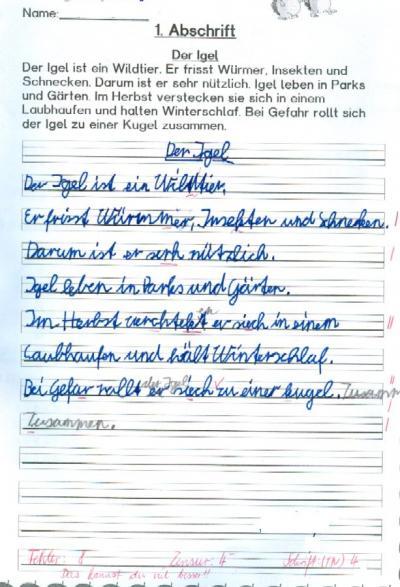 Name:
1. Abschrift
Der Igel
Der Igel ist ein Wildtier. Er frisst Würmer, Insekten und
Schnecken. Darum ist er sehr nützlich. Igel leben in Parks
und Gärten. Im Herbst verstecken sie sich in einem
Laubhaufen und halten Winterschlaf. Bei Gefahr rollt sich
der Igel zu einer Kugel zusammen.
Der Igel
Der Igel ist ein Wildtier.
Er frisst Würmmer, Insekten und Schnecken.
Darum ist er serh nützlich.
Igel leben in Parks und Gärten.
Im Herbst verchtekt er siech in einem
Laubhaufen und hält Winterschlaf.
der Igel
Bei Gefar rallt er siech zu einer kugel. Zusamm
Zusammen.
Fehler: 8 Zensur: 4- Schrift: (TN) 4
Das kannst du viel besser!!